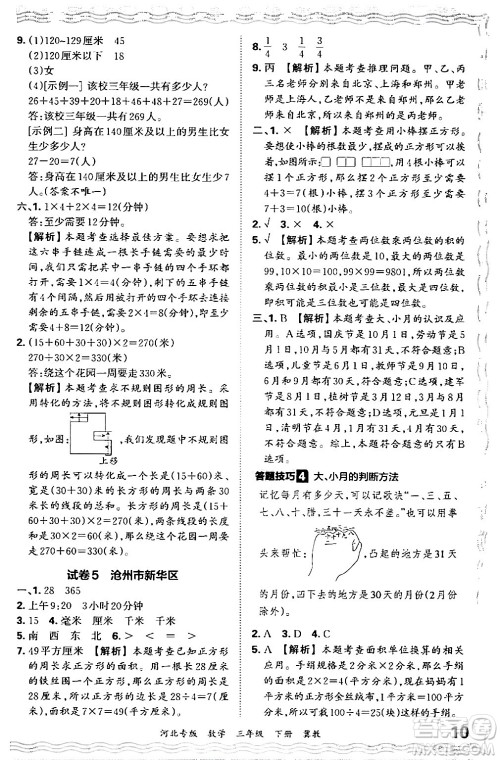 9.(1)120~129厘米 45
(2)120厘米以下 18
(3)女
(4)[示例一]该校三年级一共有多少人?
26+45+31+37+26+18+24+35+
27=269(人)
答:该校三年级一共有269人。
[示例二]身高在140厘米及以上的男生比女
生少多少人?
27-20=7(人)
答:身高在140厘米及以上的男生比女生少7
人。(答案不唯一)
六、1.4×2+4=12(分钟)
答:至少需要12分钟。
【解析】本题考查选择最佳方案。要想把
这六串手链连成一根长手链需要的时间
最少,可以将其中的一串手链的4个手环都
打开,需要的时间为2×4=8(分钟)。此
时,剩下的五串手链中间有4个空隙,正好
用打开的这四个手环去连接剩余的五串
手链,至少需要的时间为1×4=4(分钟)。
2.(1)(60+15+60)×2=270(米)
270÷30=9(分钟)
答:绕这个花园一周大约需要9分钟。
(2)(15+60+60)×2=270(米)
答:绕这个花园一周大约是270米。
【解析】本题考查不规则图形的周长。采用
转化的方法,将不规则图形转化为规则图
形,如图,
上移
,由图可以发现,这个
图形的周长可以转化为一个长是(15+60)
米、宽是60米的长方形的周长与两条30
米长的线段的总和,即(15+60+60)×2
+30×2=330(米)。
试卷5 沧州市新华区
一、1.28 365
2.上午9:20 3小时20分钟
3.15 4.毫米 厘米 千米 千米
5.南 西 东 北 6.四
7.49平方厘米 【解析】本题考查求组合图形中
正方形的面积。用一根长28厘米的铁丝围
成正方形,则正方形的周长是28厘米,边长
是28÷4=7(厘米)。根据正方形的面积=边
长×边长,所以正方形的面积是7×7=49(平
方厘米)。
8.①1/4 3/4 ②1/4 3/4
9.丙 【解析】本题考查推理问题。甲、乙、丙
三名老师分别来自北京、上海和郑州。甲
老师是上海人,乙老师不是来自郑州,那么
乙老师来自北京,丙老师来自郑州。
二、1.× 【解析】本题考查用小棒摆正方形。
要想使小棒的根数最少,摆成的正方形可以
是如图所示:
,摆成1个正方形需
要4根小棒,摆成2个正方形需要4+3=7
(根)小棒,摆成3个正方形需要
7+3=10(根)小棒。
2.√ 3.× 4.√
5.√ 【解析】本题考查两位数乘两位数的积
的位数。最小的两位数是10,最大的两位数是
99,10×10=100,99×99=9801,所以两位
数乘两位数的积最小是三位数,最大是四
位数。
三、1.B 【解析】本题考查大、小月的认识及应
用。A选项,国庆节是10月1日,劳动节是5
月1日,10月和5月都有31天,不符合题意;B
选项,儿童节是6月1日,教师节是9月10日,6
月和9月都有30天,符合题意;C选项,建军节
是8月1日,植树节是3月12日,8月和3月都
有31天,不符合题意;D选项,元旦是1月1
日,清明节大约是4月5日,1月有31天,4月有
30天,不符合题意。综上,故选B。
答题技巧4 大、小月的判断方法
记忆每月有多少天,可以记歌诀“一、三、五、
七、八、十、腊,三十一天永不差。”也可以用拳
头来帮忙:
,凸起的地方是31天
的月份,凹下去的地方是30天的月份(2月份
除外)。
2.A
3.A 【解析】本题考查面积单位换算的实际
应用。手绢规格是2分米×2分米,则1块手
绢的面积是2×2=4(平方分米)。因为1平
方米=100平方分米,100÷4=25,所以1平
河北专版 数学 三年级 下册 冀教 10